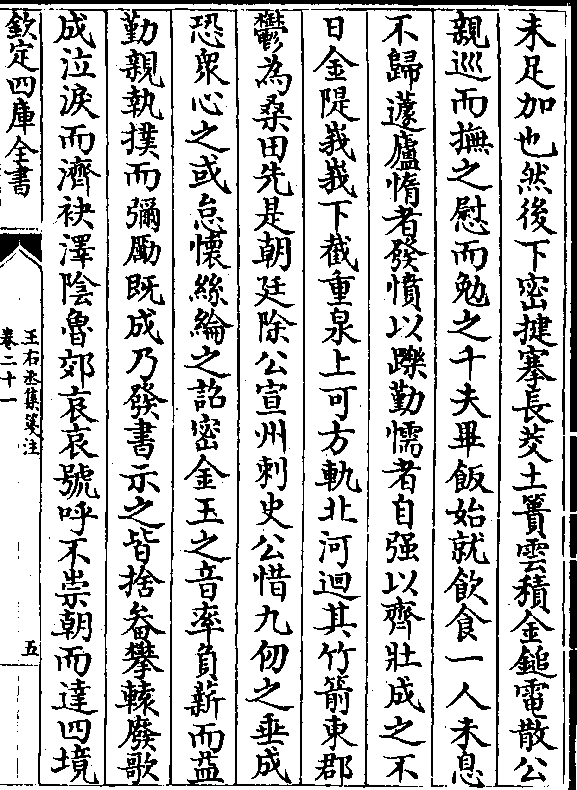 未足加也然後下密揵搴長茭土簣雲積金鎚電散公
親巡而撫之慰而勉之千夫畢飯始就飲食一人未息
不歸蘧廬惰者發憤以躒勤懦者自强以齊壯成之不
日金隄峩峩下截重泉上可方軌北河迴其竹箭東郡
鬱為桑田先是朝廷除公宣州刺史公惜九仞之垂成
恐衆心之或怠懷絲綸之詔密金玉之音率負薪而益
勤親執撲而彌勵既成乃發書示之皆捨畚攀轅廢歌
成泣淚而濟袂澤陰魯郊哀哀號呼不崇朝而達四境
欽定四庫全書
王右丞集箋注
卷二十一
五